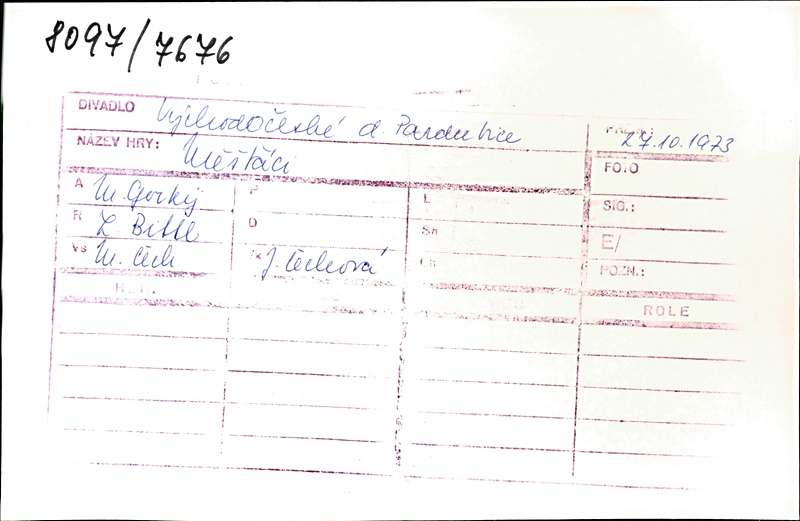 8097/7676
DIVADLO Východočeské d. Pardubice
27.10.1973
NÁZEV HRY: Měšťáci
FOTO
A M. Gorkij P L
SIG.:
R Z. Bittl D Sh
E/
Vs M. Čech J. Čechová Ch
POZN.:
ROLE